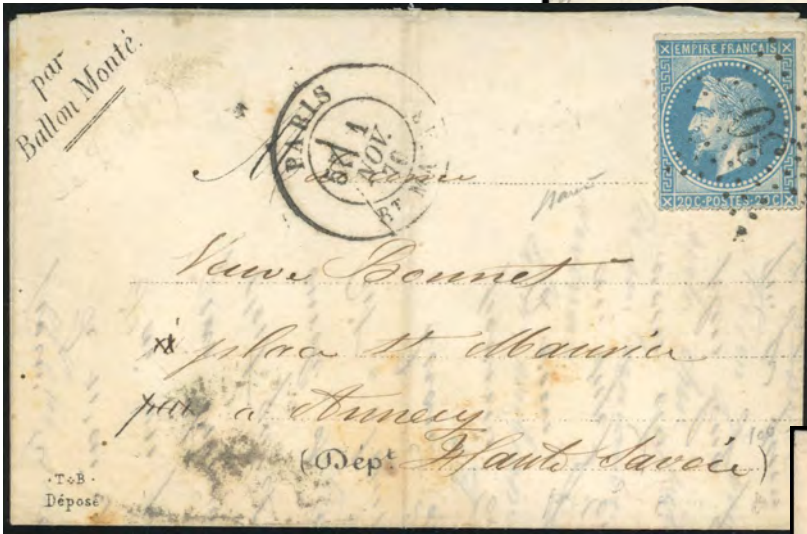 par
Ballon Monté.
PARIS
1
NOV.
70
EMPIRE FRANÇAIS
20
20 C·POSTES·20 C
Madame
Veuve Bonnet
place St Maurice
a Annecy
(Dépt. Haute Savoie)
100
·T&B·
Déposé